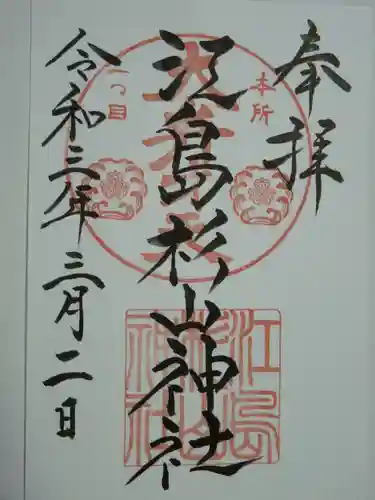 奉拝
本所
一つ目
江島杉山神社
令和三年三月二日
江島
杉山
神社